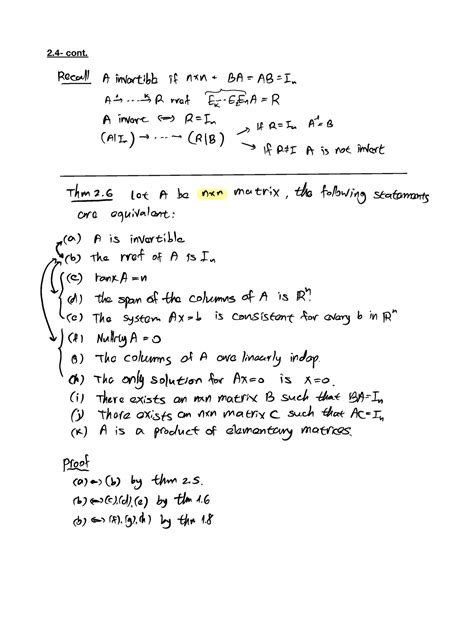 2.4- cont.
Recall A invertible if nxn + BA = AB = In
A →1 ... →k R rref Ek...E2E1A = R
A invert ⟺ R = In
(A|In) → ... → (R|B) → If R = In A⁻¹ = B
→ If R≠I A is not invert
Thm 2.6 Let A be nxn matrix, the following statements
are equivalent:
(a) A is invertible
(b) The rref of A is In
(c) rank A = n
(d) The span of the columns of A is ℝⁿ.
(e) The system Ax=b is consistent for every b in ℝⁿ
(f) Nullity A = 0
(g) The columns of A are linearly indep.
(h) The only solution for Ax=0 is x=0.
(i) There exists an nxn matrix B such that BA=In
(j) There exists an nxn matrix C such that AC=In
(k) A is a product of elementary matrices.
Proof
(a)⟺(b) by thm 2.5.
(b)⟺(c),(d),(e) by thm 1.6
(b)⟺(f),(g),(h) by thm 1.8